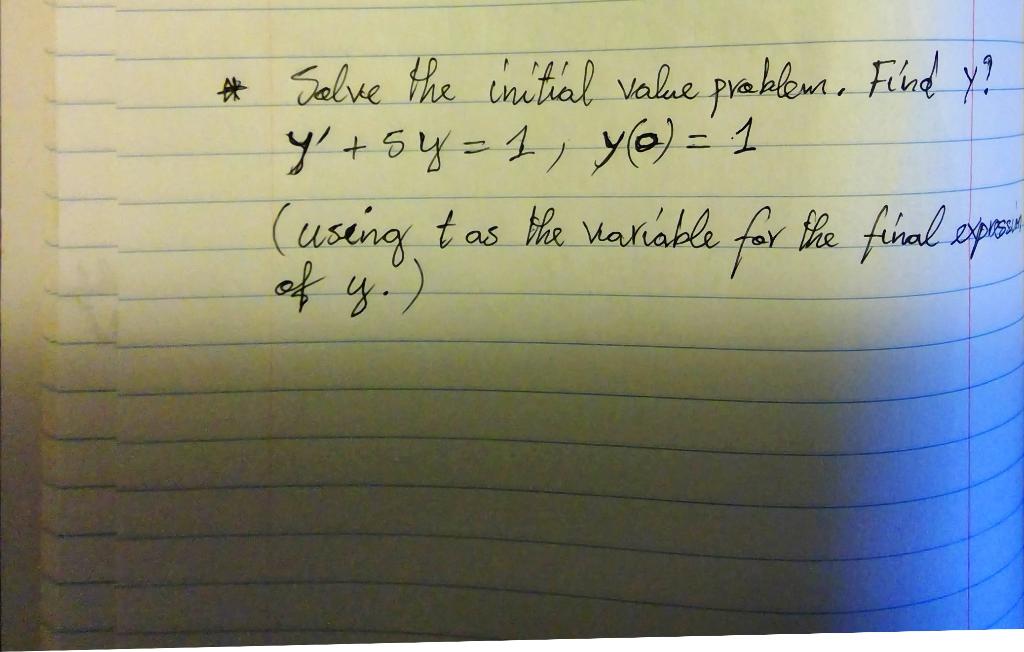 * Solve the initial value problem. Find y?
y' + 5y = 1, y(0) = 1
(using t as the variable for the final expression
of y.)